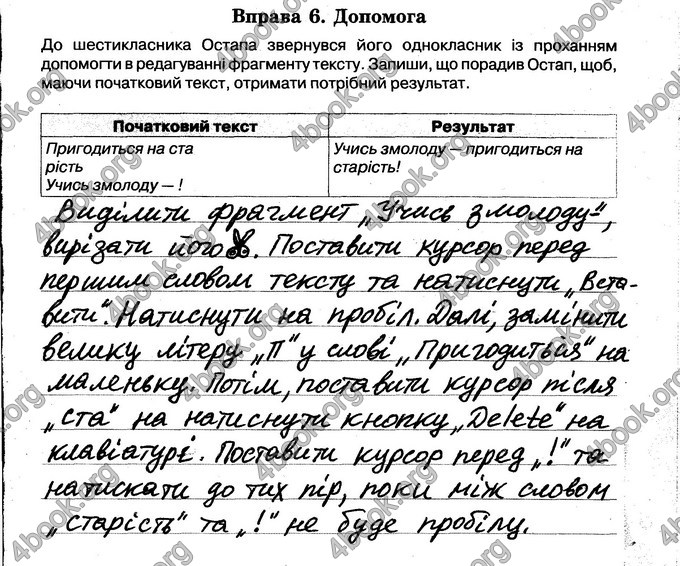 Вправа 6. Допомога
До шестикласника Остапа звернувся його однокласник із проханням
допомогти в редагуванні фрагменту тексту. Запиши, що порадив Остап, щоб,
маючи початковий текст, отримати потрібний результат.
Початковий текст
Результат
Пригодиться на ста
рість
Учись змолоду — !
Учись змолоду — пригодиться на
старість!
Виділити фрагмент „Учись змолоду-",
вирізати його. Поставити курсор перед
першим словом тексту та натиснути „Вста-
вити". Натиснути на пробіл. Далі, замінити
велику літеру „П" у слові „Пригодиться" на
маленьку. Потім, поставити курсор після
„ста" на натиснути кнопку „Delete" на
клавіатурі. Поставити курсор перед „!" та
натискати до тих пір, поки між словом
„старість" та „!" не буде пробілу.
4book.org